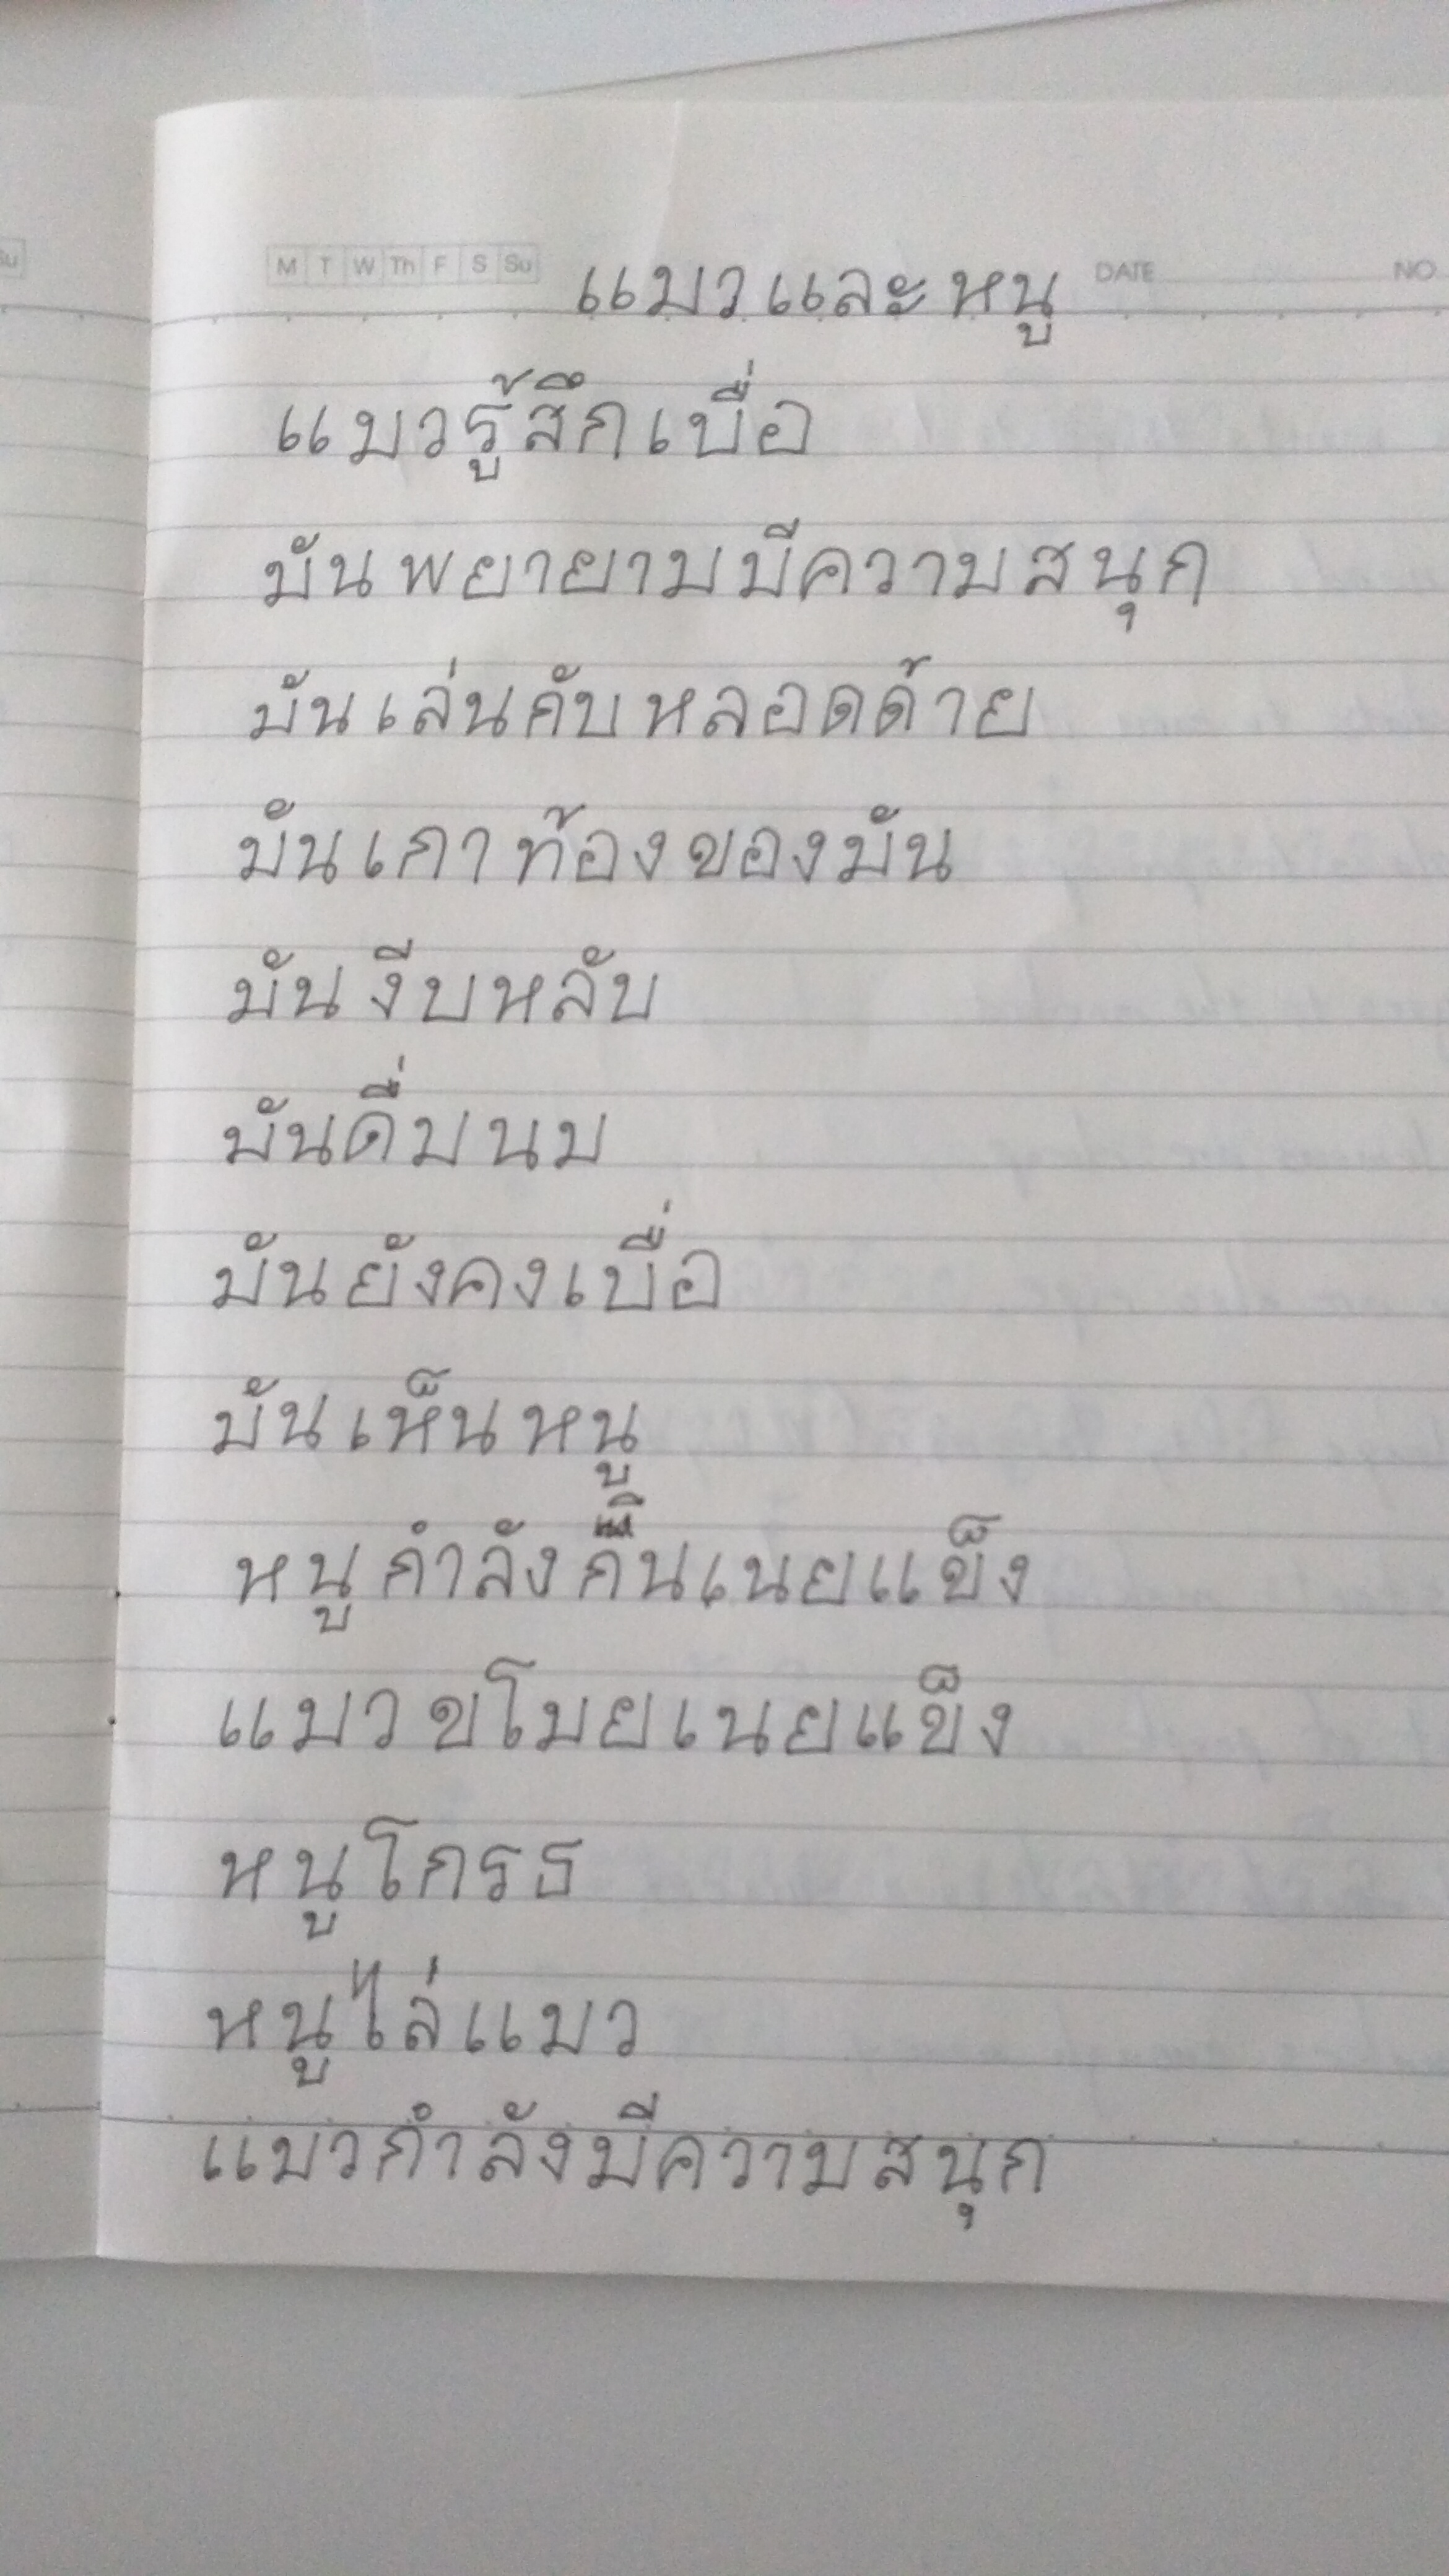 Su
M T W Th F S Su แมวและหนู DATE NO
แมวรู้สึกเบื่อ
มันพยายามมีความสนุก
มันเล่นกับหลอดด้าย
มันเกาท้องของมัน
มันงีบหลับ
มันดื่มนม
มันยังคงเบื่อ
มันเห็นหนู
หนูกำลังกินเนยแข็ง
แมวขโมยเนยแข็ง
หนูโกรธ
หนูไล่แมว
แมวกำลังมีความสนุก